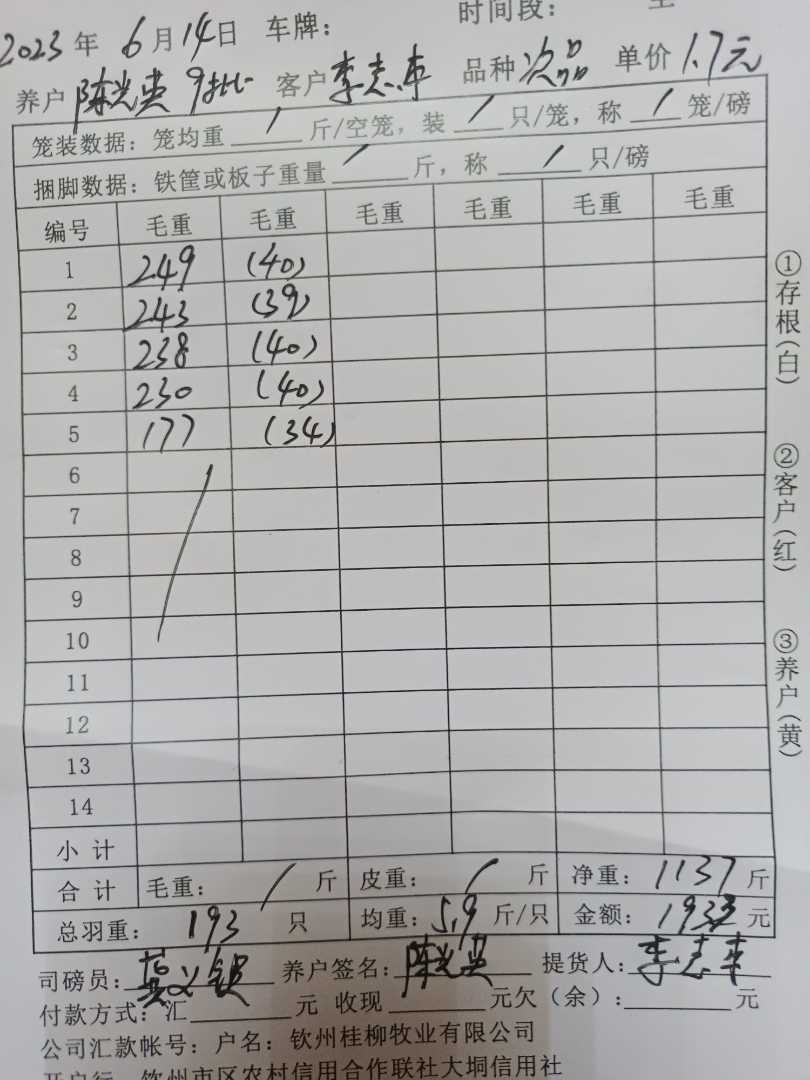 时间段: 至
2023年6月14日 车牌:
养户 陈光英 9批 客户 李志车 品种 次品 单价 1.7元
笼装数据: 笼均重 / 斤/空笼, 装 / 只/笼, 称 / 笼/磅
捆脚数据: 铁筐或板子重量 / 斤, 称 / 只/磅
编号 毛重 毛重 毛重 毛重 毛重 毛重
1 249 (40)
2 243 (39)
3 238 (40)
4 230 (40)
5 177 (34)
6
7
8
9
10
11
12
13
14
小计
合计 毛重: / 斤 皮重: / 斤 净重: 1137 斤
总羽重: 193 只 均重: 5.9 斤/只 金额: 1933 元
司磅员: 养户签名: 陈光英 提货人: 李志车
付款方式: 汇 元 收现 元欠(余): 元
公司汇款帐号: 户名: 钦州桂柳牧业有限公司
开户行: 钦州市区农村信用合作联社大垌信用社
①存根(白)
②客户(红)
③养户(黄)